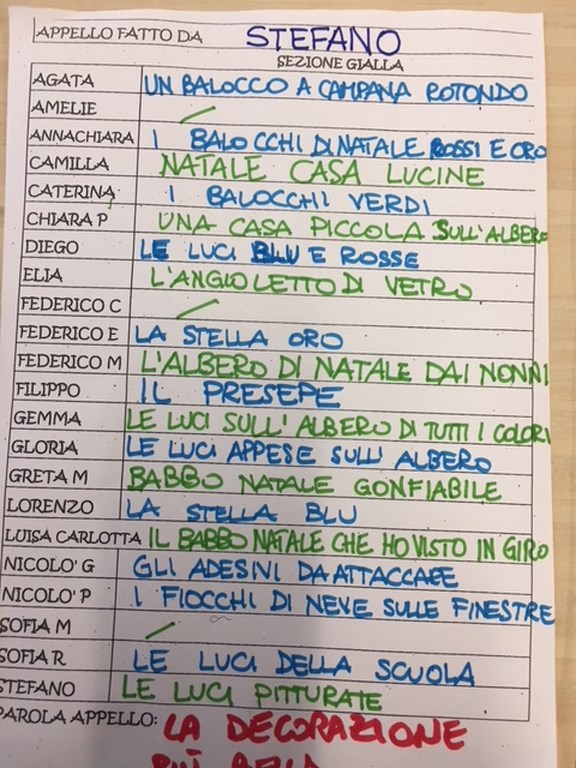 APPELLO FATTO DA STEFANO
SEZIONE GIALLA
AGATA UN BALOCCO A CAMPANA ROTONDO
AMELIE /
ANNACHIARA I BALOCCHI DI NATALE ROSSI E ORO
CAMILLA NATALE CASA LUCINE
CATERINA I BALOCCHI VERDI
CHIARA P UNA CASA PICCOLA SULL'ALBERO
DIEGO LE LUCI BLU E ROSSE
ELIA L'ANGIOLETTO DI VETRO
FEDERICO C /
FEDERICO E LA STELLA ORO
FEDERICO M L'ALBERO DI NATALE DAI NONNI
FILIPPO IL PRESEPE
GEMMA LE LUCI SULL'ALBERO DI TUTTI I COLORI
GLORIA LE LUCI APPESE SULL'ALBERO
GRETA M BABBO NATALE GONFIABILE
LORENZO LA STELLA BLU
LUISA CARLOTTA IL BABBO NATALE CHE HO VISTO IN GIRO
NICOLO' G GLI ADESIVI DA ATTACCARE
NICOLO' P I FIOCCHI DI NEVE SULLE FINESTRE
SOFIA M /
SOFIA R LE LUCI DELLA SCUOLA
STEFANO LE LUCI PITTURATE
PAROLA APPELLO: LA DECORAZIONE
PIÙ BELLA